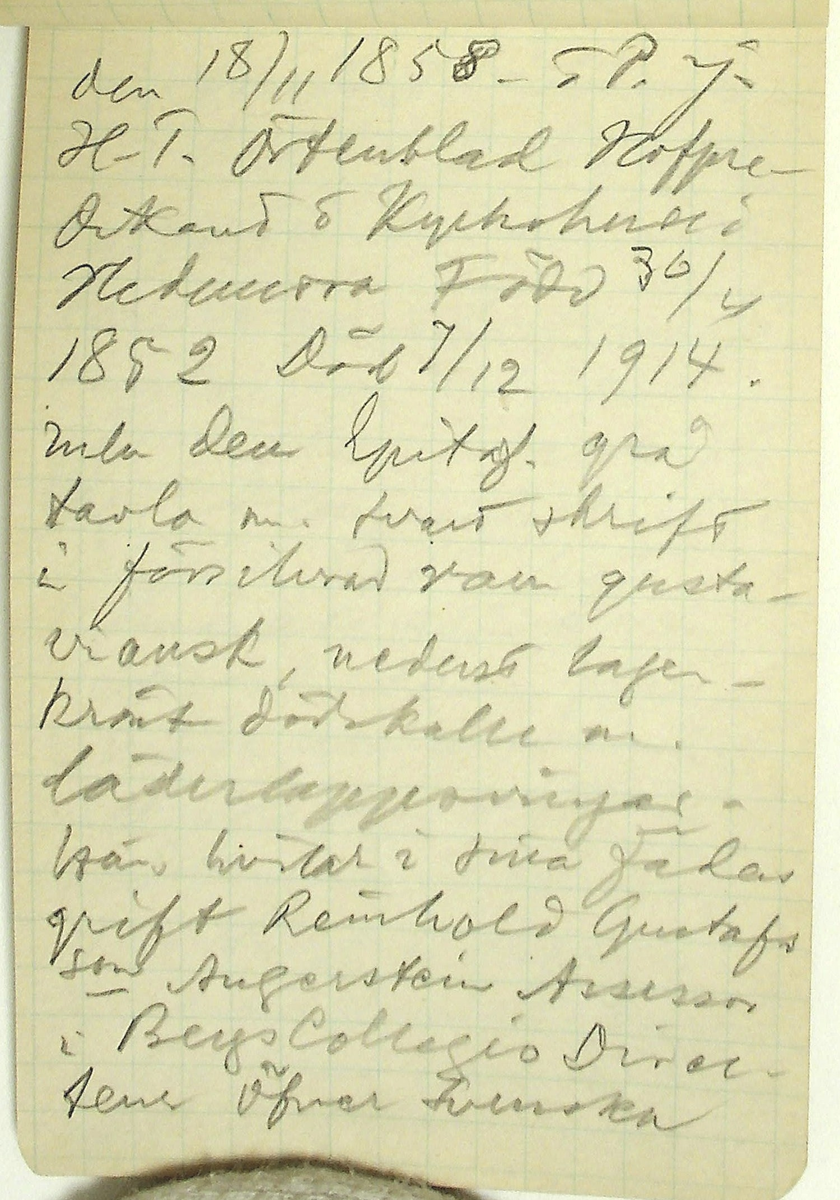 den 18/11 1858 - T. P. J.
H. T. Örtenblad Hofpre-
dikant o Kyrkoherde i
Hedemora Född 30/4
1852 Död 7/12 1914.
den Epitaf. grå
tavla m. svart skrift
i försilvrad ram gusta-
viansk, nederst lager-
krönt dödskalle m.
läderlappsvingar.
Här hvilar i sina fäders
grift Reinhold Gustafs
son Angerstein Assessor
i BergsCollegio Direc-
teur Öfver Svenska